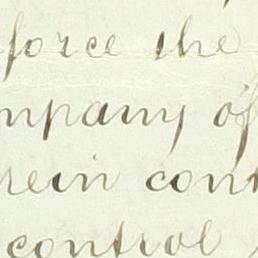 force the
mpany of
rein cont
control